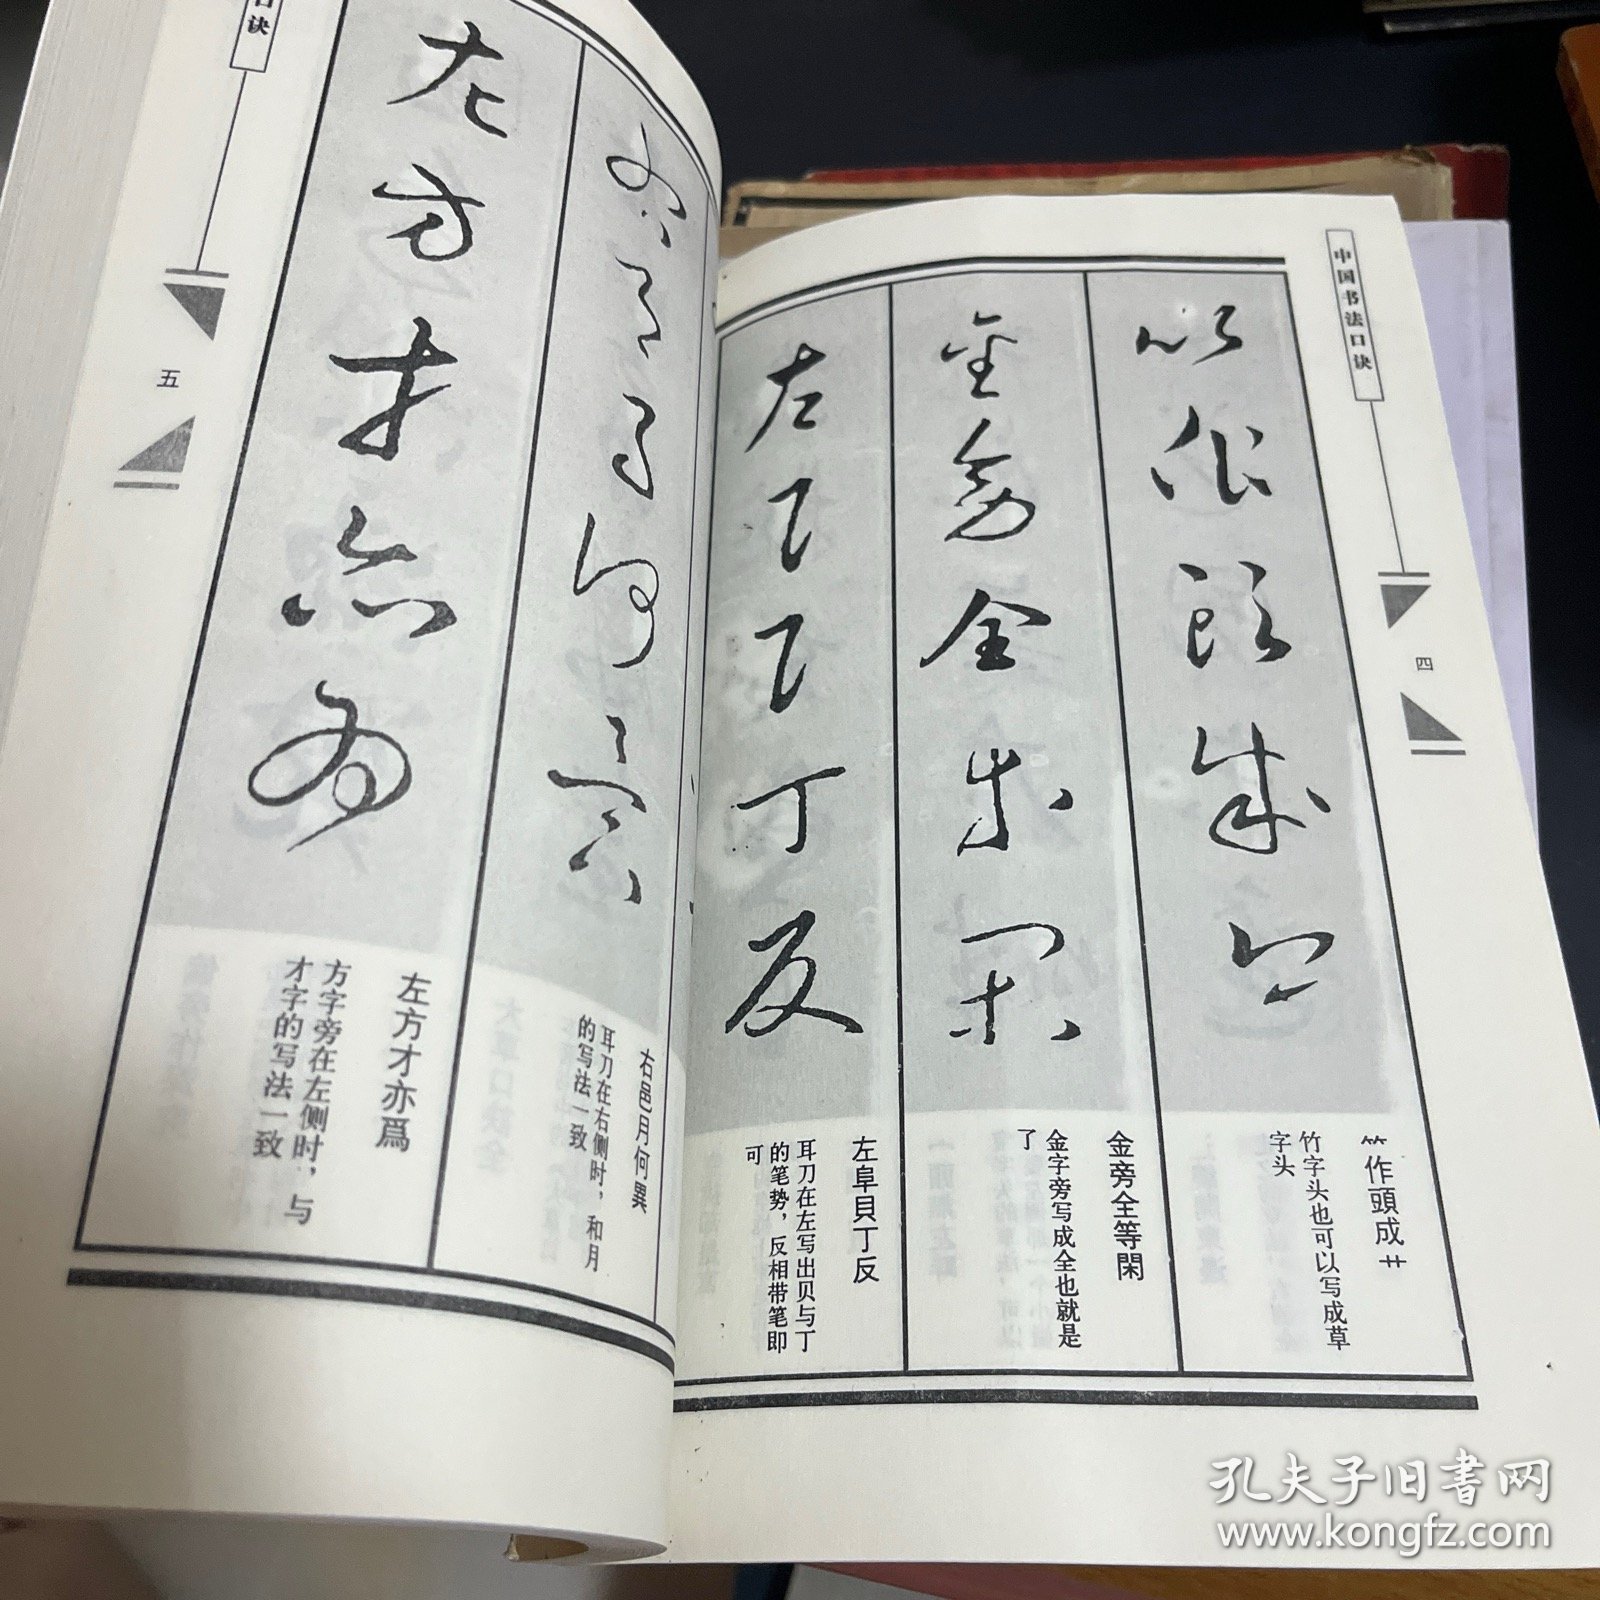 中国书法口诀
四
𥫗作頭成艹
竹字头也可以写成草
字头
金旁全等閑
金字旁写成全也就是
了
左阜貝丁反
耳刀在左写出贝与丁
的笔势，反相带笔即
可
口诀
五
右邑月何異
耳刀在右侧时，和月
的写法一致
左方才亦爲
方字旁在左侧时，与
才字的写法一致
左方才亦为
孔夫子旧书网
www.kongfz.com